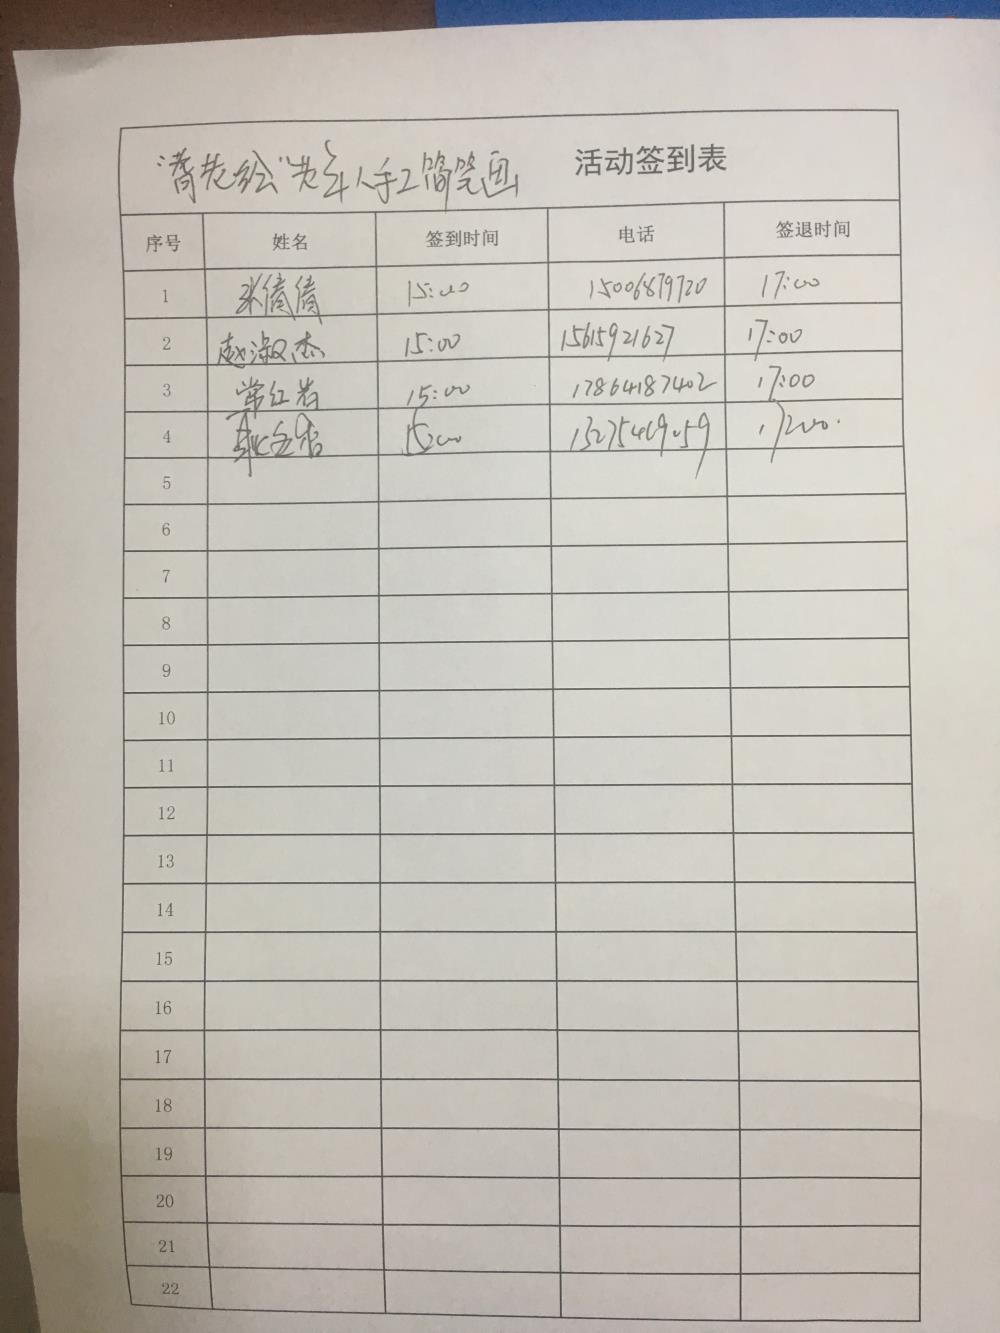 "耆老绘"老年人手工简笔画 活动签到表
序号 姓名 签到时间 电话 签退时间
1 张倩倩 15:00 15006879720 17:00
2 赵淑杰 15:00 15615921627 17:00
3 常红岩 15:00 17864187402 17:00
4 15:00 17:00
5
6
7
8
9
10
11
12
13
14
15
16
17
18
19
20
21
22